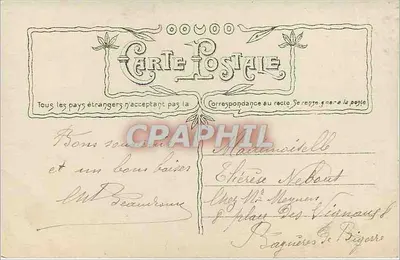 CARTE POSTALE
Tous les pays étrangers n'acceptent pas la Correspondance au recto. Se renseigner à la poste
CPAPHIL
Bon souvenir
et un bon baiser
Mademoiselle
Thérèse Nebout
Chez Me
8 place des Vignaux 8
Bagnères de Bigorre